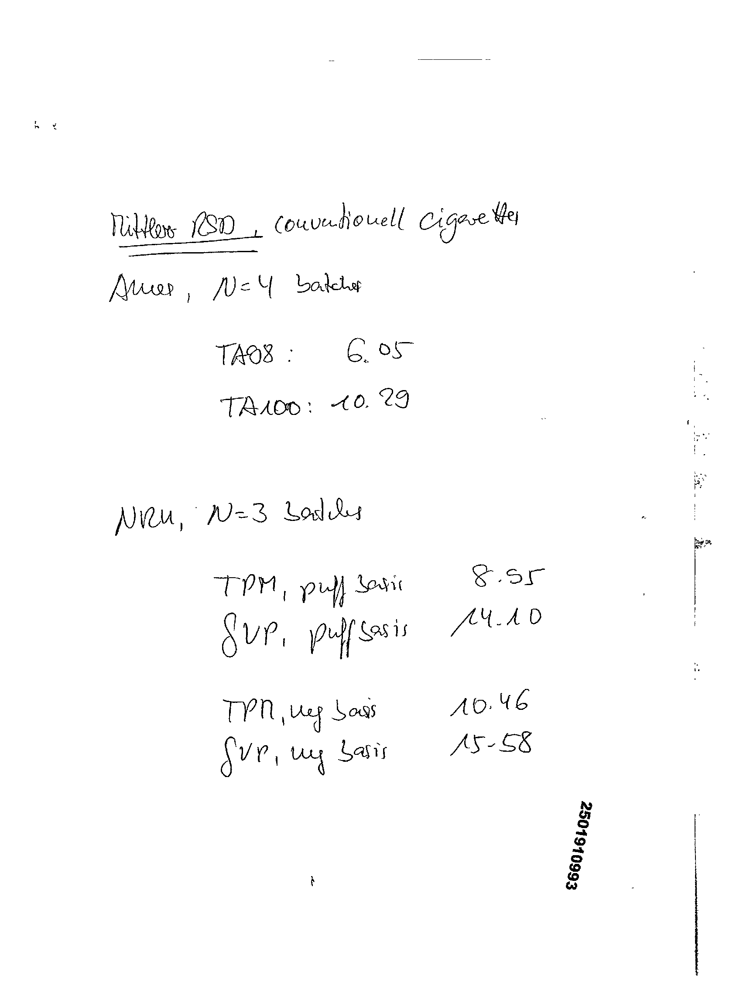 Mittlere RSD, conventionell cigarettes
Ames, N=4 batches
TA98: 6.05
TA100: 10.29
NRU, N=3 batches
TPM, puff basis 8.55
GVP, puff basis 14.10
TPM, mg basis 10.46
GVP, mg basis 15.58
2501910993